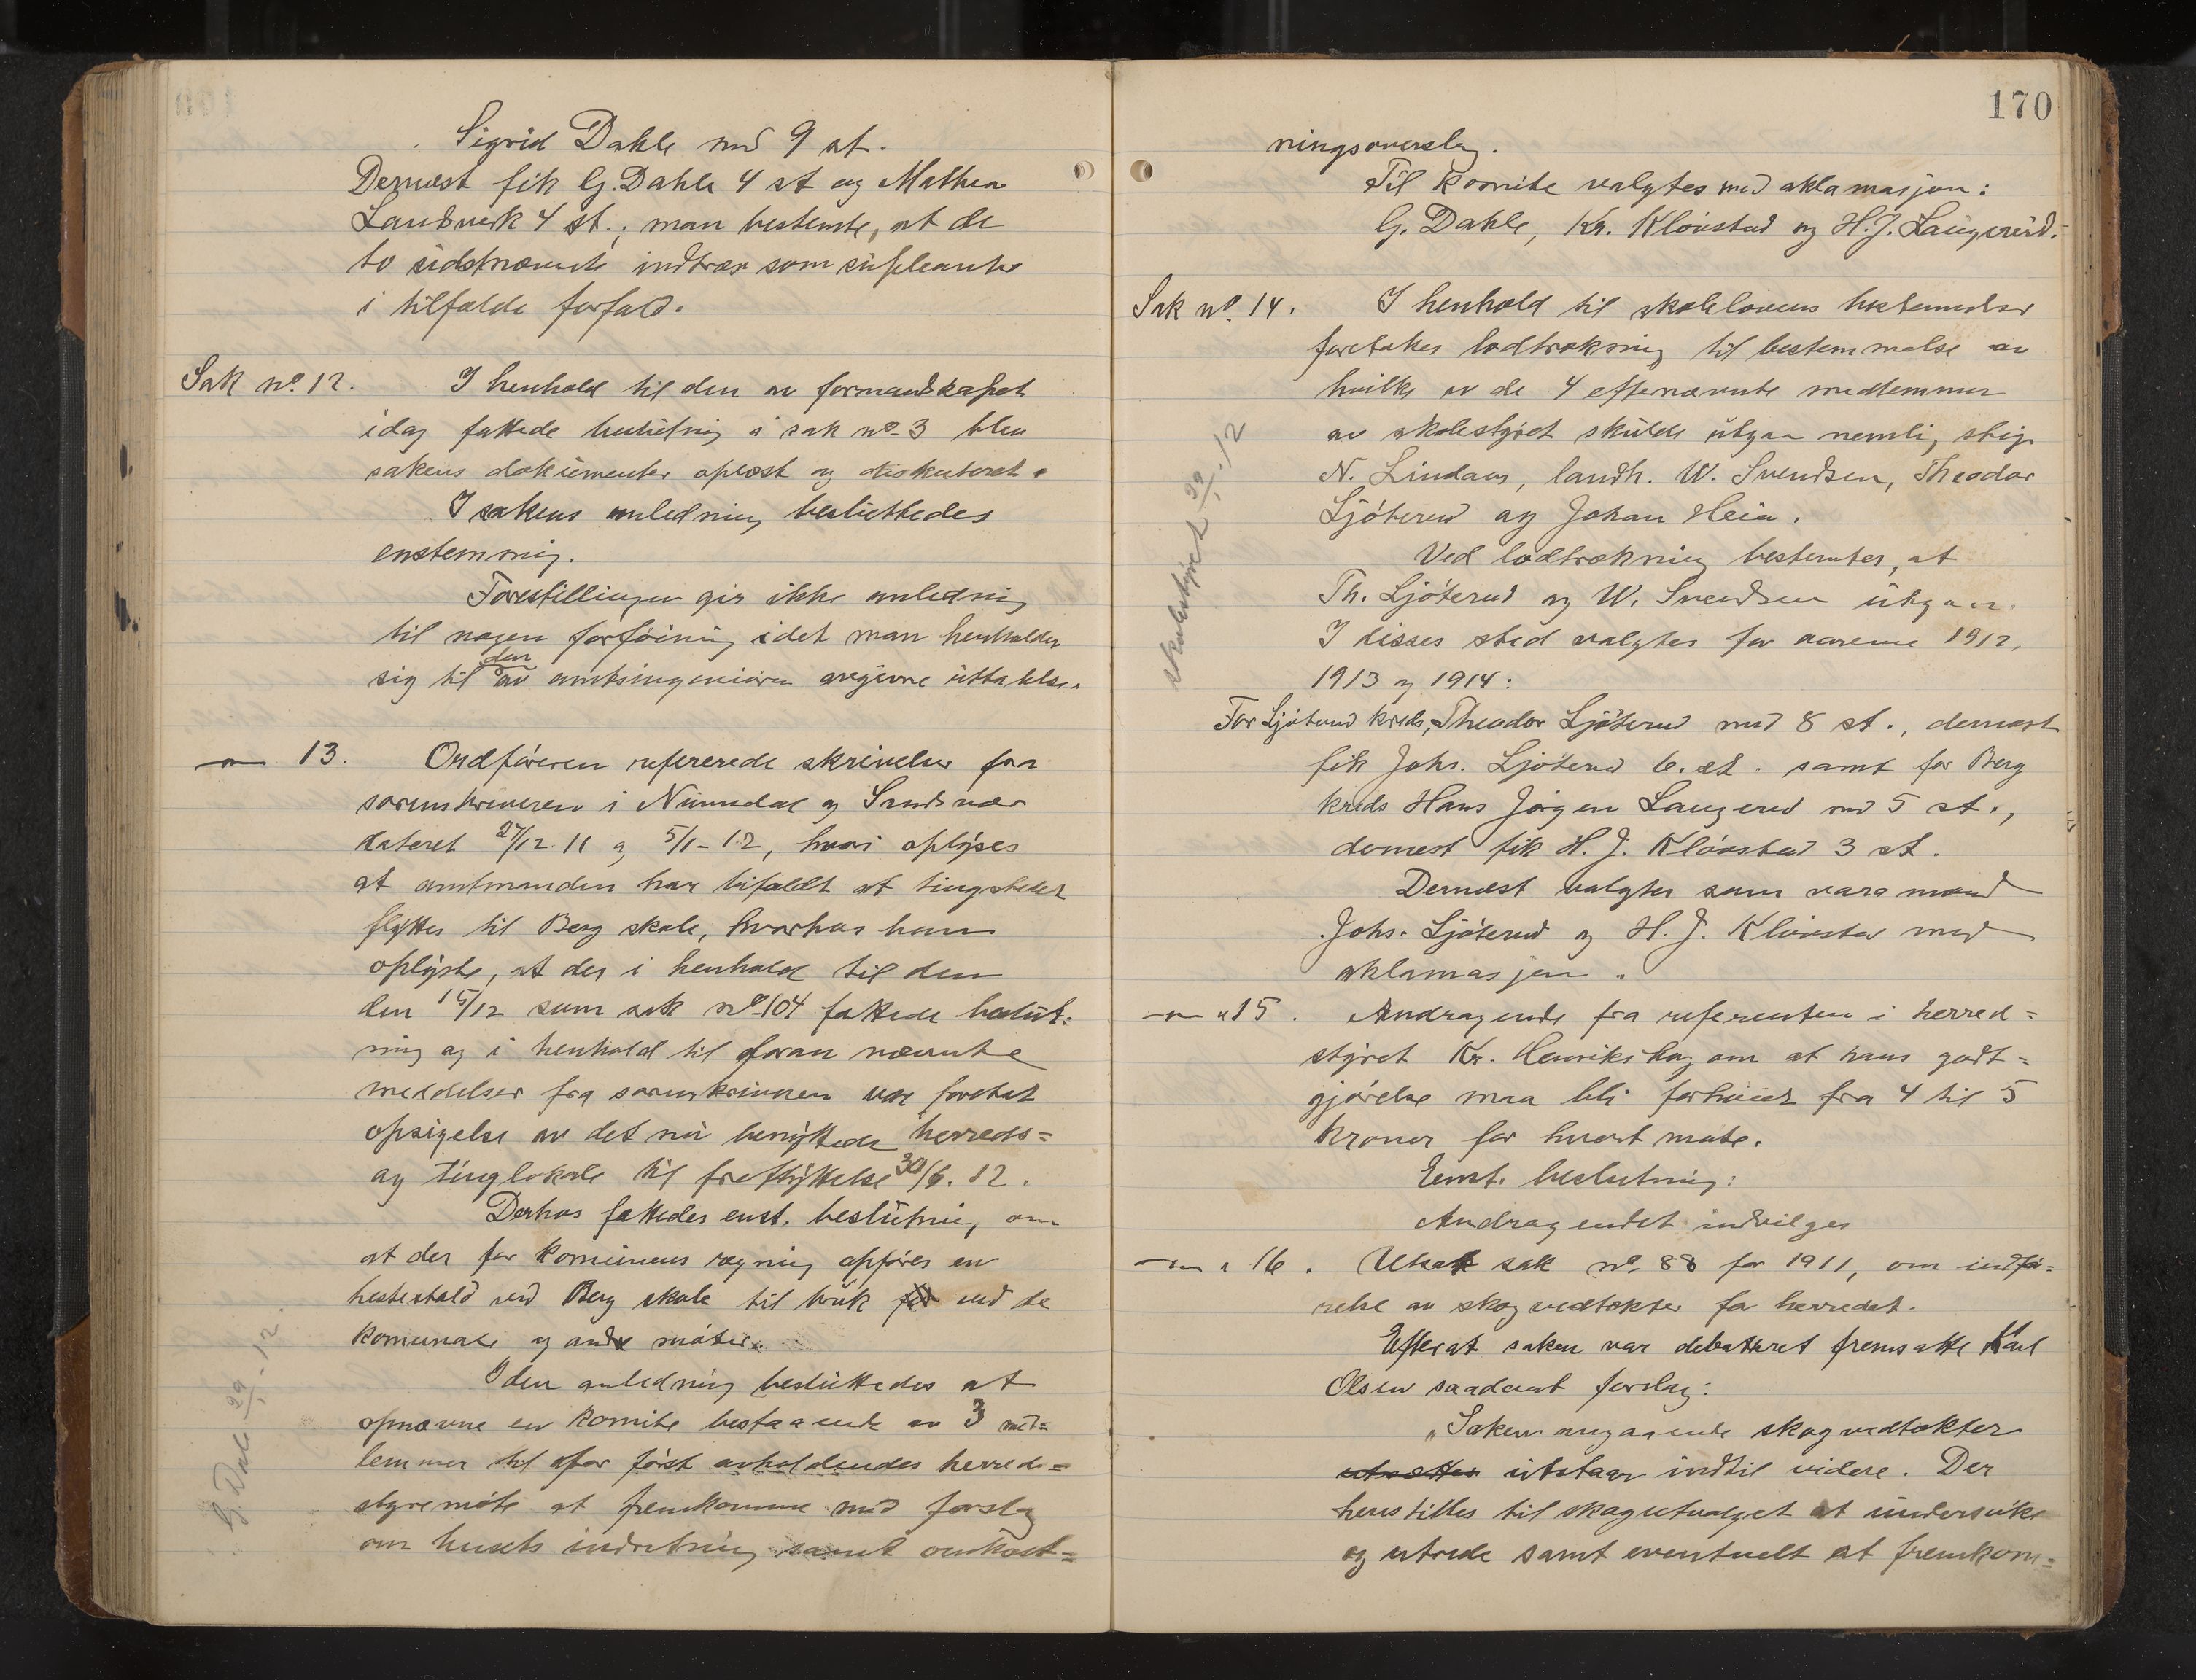 Sigrid Dahle med 9 st.
Dernæst fik G. Dahle 4 st og Mathea
Landverk 4 st.; man bestemte, at de
to sidstnævnte indtræ som supleanter
i tilfælde forfald.
Sak nº 12. I henhold til den av formandskapet
idag fattede beslutning i sak nº 3 blev
sakens dokumenter oplæst og diskuteret.
I sakens anledning besluttedes
enstemmig.
Forestillingen gir ikke anledning
til nogen forføining idet man henholder
sig til den av amtsingeniøren avgivne uttalelse.
— " — 13. Ordføreren refererede skrivelser fra
sorenskriveren i Numedal og Sandsvær
dateret 27/12 11 og 5/1-12, hvori oplyses
at amtmanden har bifaldt at tingstedet
flyttes til Berg skole, hvorhos han
oplyste, at der i henhold til den
den 15/12 som sak nº 104 fattede beslut:
ning og i henhold til foran nævnte
meddelser fra sorenskriveren var foretat
opsigelse av det nu benyttede herreds=
og tinglokale til fraflyttelse 30/6. 12.
Derhos fattedes enst. beslutning, om
at der for komunens regning opføres en
hestestald ved Berg skole til bruk ved de
komunale og andre møter.
I den anledning besluttedes at
opnævne en komite bestaaende av 3 med=
lemmer til for først avholdendes herreds=
styremøte at fremkomme med forslag
om husets indretning samt omkost=
G. Dahle 29/1-12.
170
ningsoverslag.
Til komite valgtes med aklamasjon:
G. Dahle, Kr. Kløvstad og H. J. Laugerud.
Sak nº. 14. I henhold til skolelovens bestemmelser
foretokes lodtrækning til bestemmelse av
hvilke av de 4 efternævnte medlemmer
av skolestyret skulde utgaa nemlig, stip.
N. Lindaas, landh. W. Svendsen, Theodor
Ljøterud og Johan Heia.
Ved lodtrækning bestemtes, at
Th. Ljøterud og W. Svendsen utgaar.
I disses sted valgtes for aarene 1912,
1913 og 1914:
For Ljøterud kreds, Theodor Ljøterud med 8 st., dernæst
fik Johs. Ljøterud 6. st. samt for Berg
kreds Hans Jørgen Laugerud med 5 st.,
dernæst fik H. J. Kløvstad 3 st.
Dernæst valgtes som varamænd
Johs. Ljøterud og H. J. Kløvstad med
aklamasjon.
— " — " 15. Andragende fra referenten i herred=
styret Kr. Henrikshaug om at hans godt=
gjørelse maa bli forhøiet fra 4 til 5
kroner for hvert møte.
Enst. beslutning:
Andragendet indvilges
— " — " 16. Utsat sak nº. 88 for 1911, om indfø=
relse av skogvedtækter for herredet.
Efterat saken var debatteret fremsatte Karl
Olsen saadant forslag:
„Saken angaaende skogvedtækter
utsættes utstaar indtil videre. Der
henstilles til skogutvalget at undersøke
og utrede samt eventuelt at fremkom=
skolestyret 29/1-12